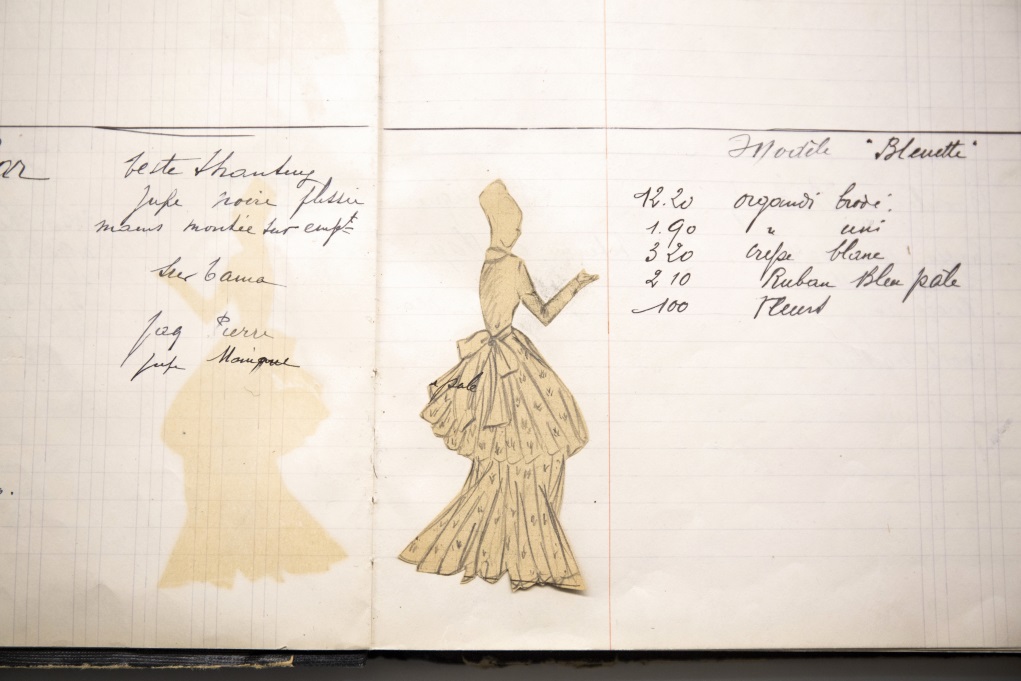 Veste Shantung
Jupe noire plissée
mains montée sur emp^t
Jacq Pierre
Jupe Monique
pale
Modèle "Bleuette"
12.20 organdi brodé.
1.90 " uni
3 20 crêpe blanc
2 10 Ruban Bleu pâle
100 Fleurs